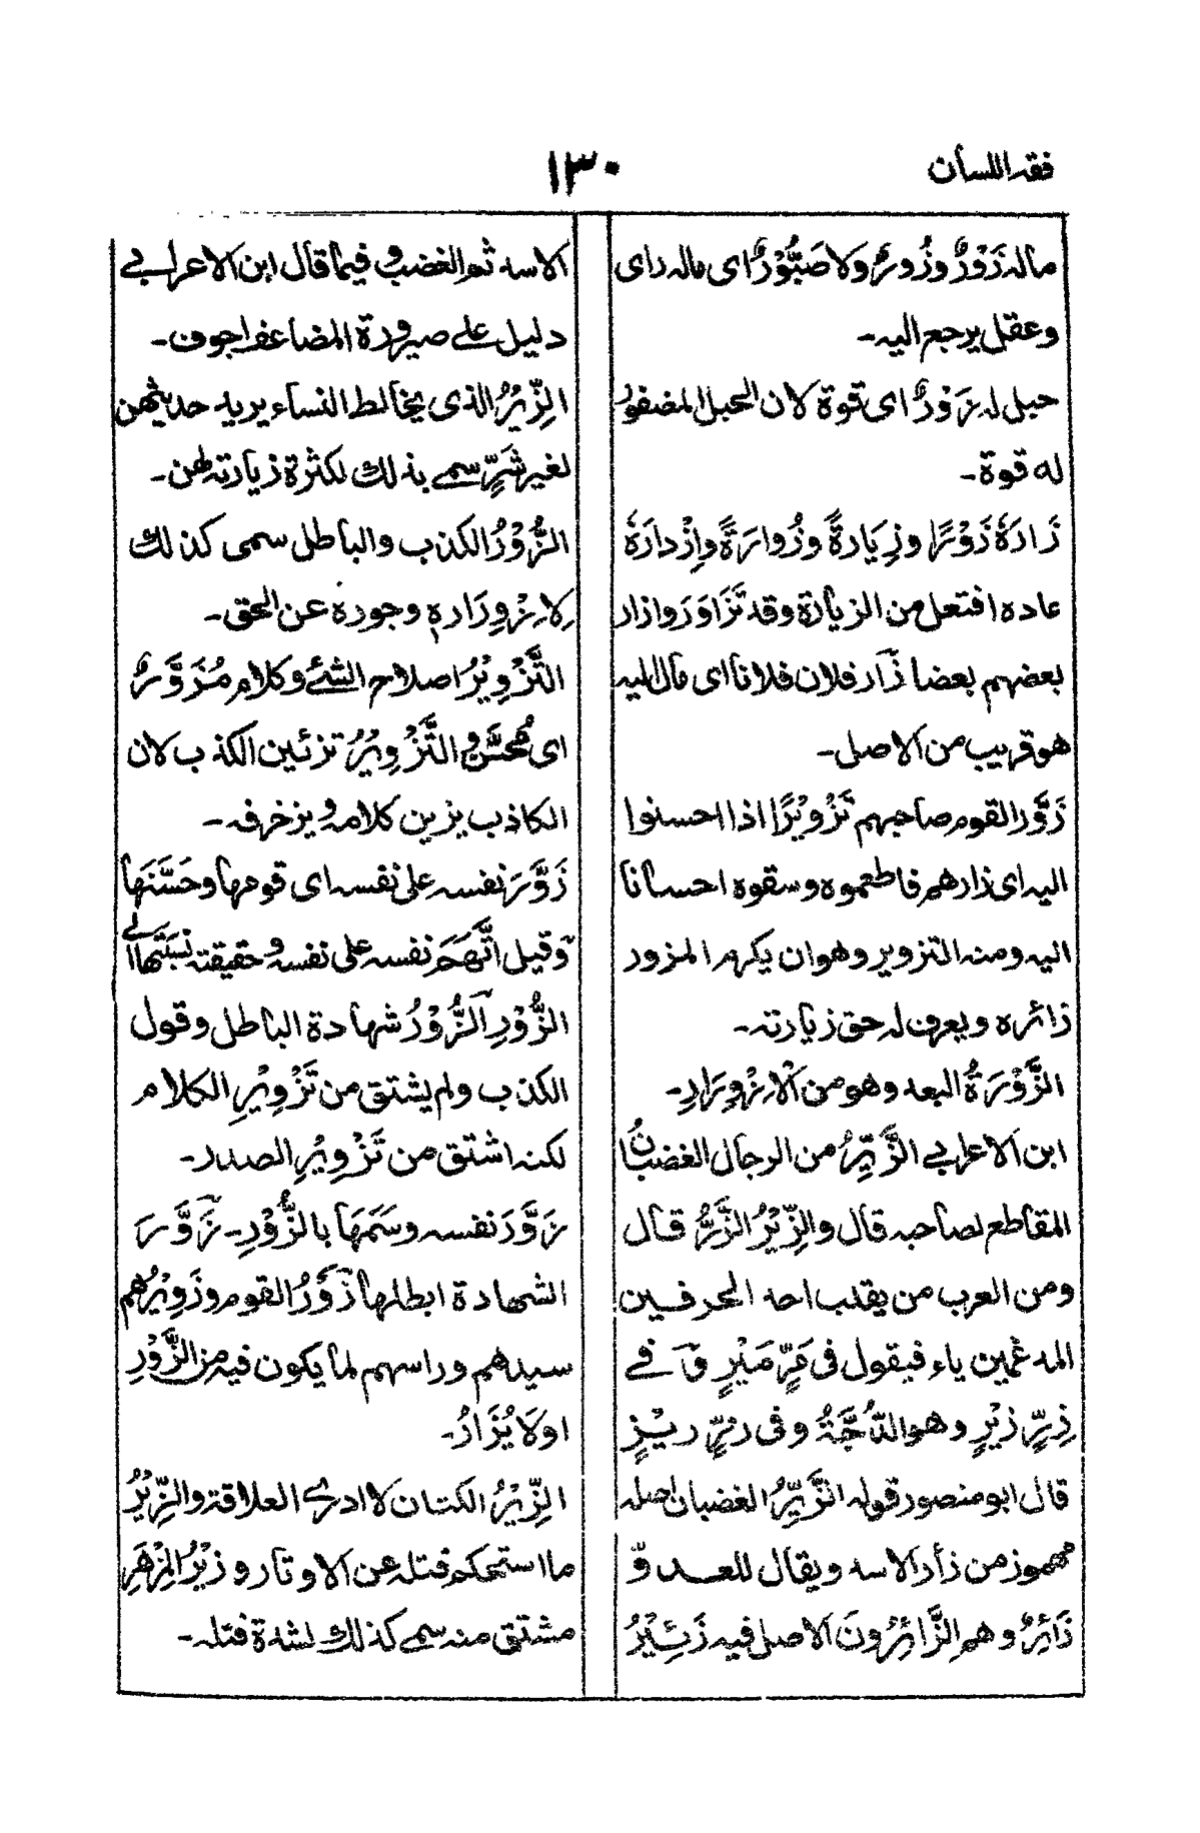 فقه اللسان
١٣٠
ماله زَوْرٌ وزُورٌ ولا صَيُّوْرٌ اى ماله راى
وعقل يرجع اليه-
حبل له زَوْرٌ اى قوة لان الحبل المضفور
له قوة-
زَارَهٗ زَوْرًا وزِيَارةً وزُوارَةً وازْدارَهٗ
عاده افتعل من الزيارة وقد تَزَاوَرَ وازار
بعضهم بعضا زَار فلان فلانا اى مال اليه
هو قريب من الاصل-
زَوَّر القوم صاحبهم تَزْوِيْرًا اذا احسنوا
اليه اى زارهم فاطعموه وسقوه احسانا
اليه ومنه التزوير وهو ان يكرم المزور
زائره ويعرف له حق زيارته-
الزَّوْرَةُ البعد وهو من الْاِزْوِرَارِ-
ابن الاعرابى الزَّيِّرُ من الرجال الغضبانُ
المقاطع لصاحبه قال والزِّيْرُ الزَّرُّ قال
ومن العرب من يقلب احد الحرفين
المدغمين ياء فيقول فى مَرٍّ مَيْرٍ وَ فے
زِرٍّ زيْرٍ وهو الدُّجَّةُ وفى رزٍّ ريْزٍ
قال ابو منصور قوله الزَّيِّرُ الغضبان اصله
مهموز من زأر الاسد ويقال للعدوّ
زَائِرٌ وهم الزَّائِرُونَ الاصل فيه زَئِيْرُ
الاسد ثم الغضب وفيما قال ابن الاعرابے
دليل علے صيرورة المضاعف اجوف-
الزِّيْرُ الذى يخالط النساء يريد حديثهن
لغير شَرٍّ سمے بذلك لكثرة زيارته لهن-
الزُّوْرُ الكذب والباطل سمى كذلك
لِازْوِرَارهٖ وجوره عن الحق-
التَّزْوِيْرُ اصلاح الشئ وكلام مُزَوَّرٌ
اى مُحَسَّنٌ والتَّزْوِيْرُ تزئين الكذب لان
الكاذب يزين كلامه ويزخرفه-
زَوَّرَ نفسه على نفسه اى قومها وحَسَّنَهَا
وّقيل اتَّهَمَ نفسه على نفسه وحقيقته نِسْبَتُهَا الے
الزُّوْرِ الزُّوْرُ شهادة الباطل وقول
الكذب ولم يشتق من تَزْوِيْرِ الكلام
لكنه اشتق من تَزْوِيْرِ الصدر-
زَوَّرَ نفسه وسَمَهَا بالزُّوْرِ- زَوَّرَ
الشهادة ابطلها زَوْرُ القوم وزَوِيْرُهُم
سيدهم وراسهم لما يكون فيه من الزَّوْرِ
او لَا يُزَارُ-
الزِّيْرُ الكتان لا ادرى العلاقة والزِّيْرُ
ما استحكم فتله عن الاوتار وزيْرُ المِزْهَرِ
مشتق منه سمے كذلك لشدة فتله-